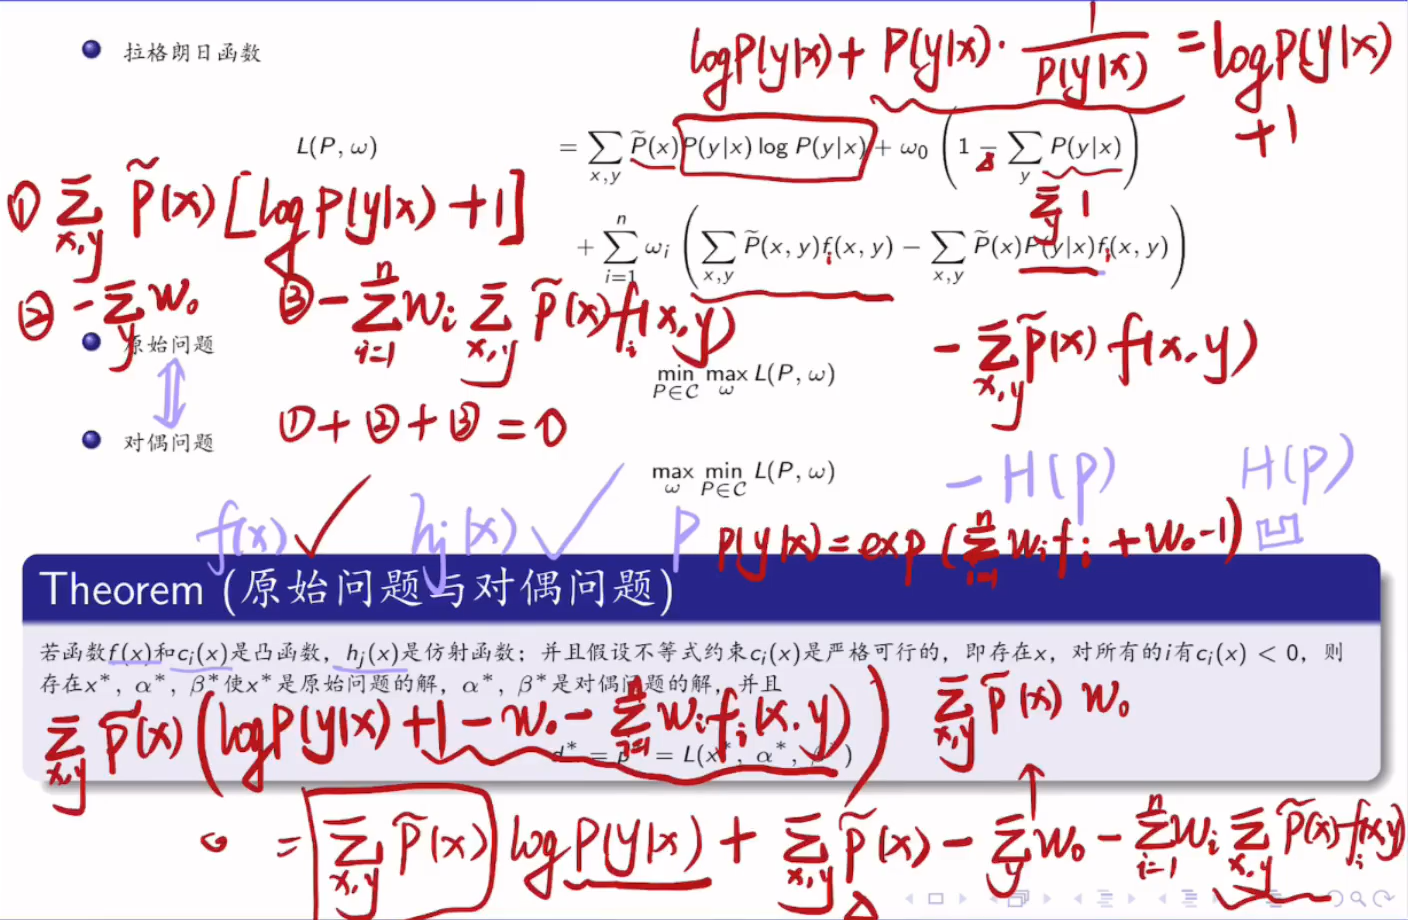 拉格朗日函数
logP(y|x) + P(y|x)· 1/P(y|x) = logP(y|x) +1
L(P, ω) = ∑x,y P̃(x)P(y|x) log P(y|x) + ω₀ (1 − ∑y P(y|x))
∑y 1
① ∑x,y P̃(x) [log P(y|x) + 1]
+ ∑i=1n ωi (∑x,y P̃(x, y)fi(x, y) − ∑x,y P̃(x)P(y|x)fi(x, y))
② −∑y W₀ ③ −∑i=1n Wi ∑x,y P̃(x) fi(x,y)
− ∑x,y P̃(x) f(x,y)
原始问题
min P∈C max ω L(P, ω)
①+②+③=0
对偶问题
max ω min P∈C L(P, ω)
−H(P) H(P)
f(x) hj(x) P P(y|x) = exp (∑i=1n Wi fi + W₀ −1) 凹
Theorem (原始问题与对偶问题)
若函数f(x)和ci(x)是凸函数，hj(x)是仿射函数；并且假设不等式约束ci(x)是严格可行的，即存在x，对所有的i有ci(x) < 0，则
存在x*，α*，β*使x*是原始问题的解，α*，β*是对偶问题的解，并且
∑x,y P̃(x) (logP(y|x) +1 − W₀ − ∑i=1n Wi fi(x,y)) ∑x,y P̃(x) W₀
d* = p* = L(x*, α*, β*)
0 = ∑x,y P̃(x) log P(y|x) + ∑x,y P̃(x) − ∑y W₀ − ∑i=1n Wi ∑x,y P̃(x) fi(x,y)